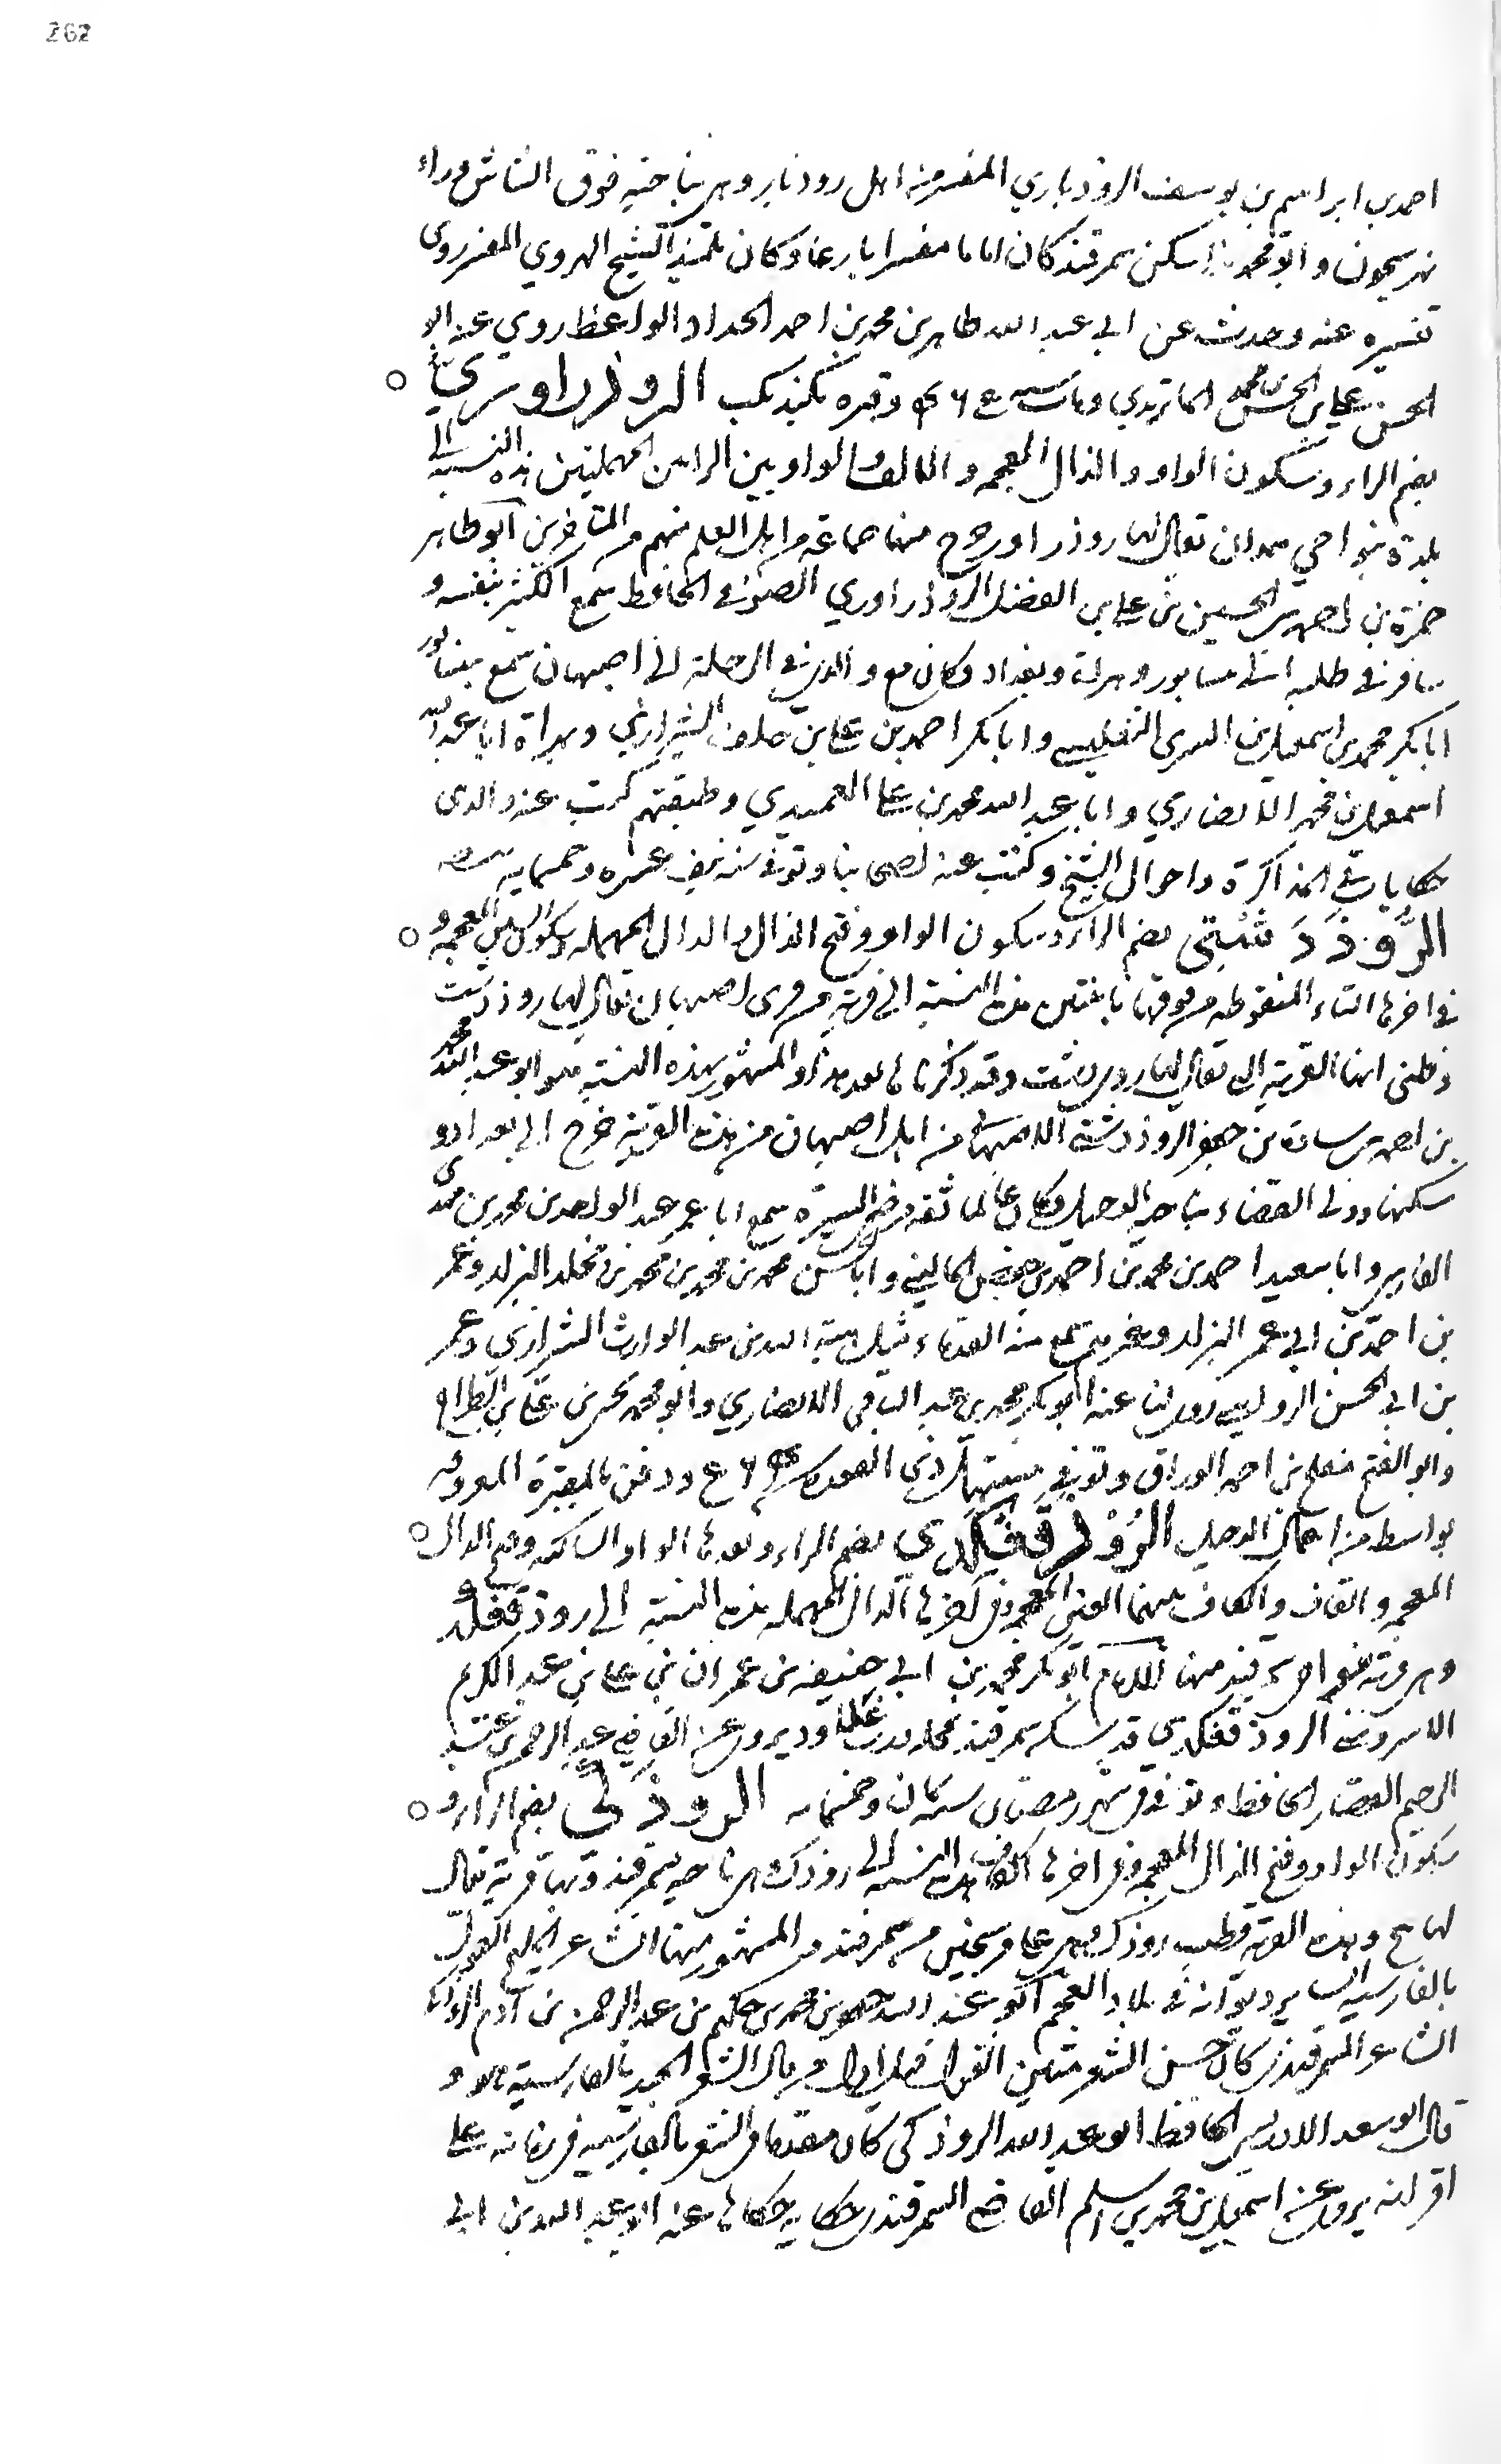 262
احمد بن ابراهيم بن يوسف الروذباري المفسر من اهل روذبار وهي بناحية فوق الشاش وراء
نهر سيحون وابو محمد هذا سكن سمرقند كان اماما مفسرا بارعا وكان تلميذ الشيخ الهروي المفسر روى
تفسيره عنه وحدث عن ابي عبد الله طاهر بن محمد بن احمد الحداد الواعظ روى عنه ابو
الحسن علي بن الحسن بن محمد الماتريدي ومات سنة وقبره الروذراوري
بضم الراء وسكون الواو والذال المعجمة والالف والواو بين الرائين المهملتين هذه النسبة الى
بلدة بنواحي همدان يقال لها روذراور خرج منها جماعة من اهل العلم منهم من المتأخرين ابو طاهر
حمزة بن احمد بن الحسين بن علي بن الفضل الروذراوري الصوفي الحافظ سمع الكثير بنفسه و
سافر في طلبه الى نيسابور وهراة وبغداد وكان مع والدي في الرحلة الى اصبهان سمع بنيسابور
ابا بكر محمد بن اسمعيل بن السري التفليسي وابا بكر احمد بن علي بن خلف الشيرازي وبهراة ابا عبد الله
اسمعيل بن محمد الانصاري وابا عبد الله محمد بن علي العميري وطبقتهم كتب عنه والدي
حكايات في المذاكرة واحوال الشيخ وكتب عنه اصحابنا وتوفي سنة نيف عشرة وخمسماية
الرُّوذَدَشْتِي بضم الراء وسكون الواو وفتح الذال والدال المهملة وسكون الشين المعجمة و
في اخرها التاء المنقوطة من فوقها باثنتين هذه النسبة الى قرية من قرى اصبهان يقال لها روذدشت
وظني انها القرية التي يقال لها رويدشت وقد ذكرناها بعد هذا والمشهور بهذه النسبة هو ابو عبد الله محمد
بن احمد بن جعفر الروذدشتي الاصبهاني من اهل اصبهان من هذه القرية خرج الى بغداد و
سكنها وولي القضاء بناحية الدجيل وكان عالما ثقة مرضي السيرة سمع ابا عمر عبد الواحد بن محمد بن مهدي
الفارسي وابا سعيد احمد بن محمد بن احمد بن حفص الماليني وابا الحسن محمد بن محمد بن محمد بن مخلد البزاز وعمر
بن احمد بن ابي عمر البزاز وغيرهم سمع منه القدماء مثل هبة الله بن عبد الوارث الشيرازي وعمر
بن ابي الحسن الرواسي روى لنا عنه ابو بكر محمد بن عبد الباقي الانصاري وابو محمد يحيى بن علي بن الطراح
وابو الفتح مفلح بن احمد الوراق وتوفي في مستهل ذي القعدة سنة ودفن بالمقبرة المعروفة
بواسط من اعمال الدجيل الرُوْذَفَغْكَدي بضم الراء وبعدها الواو الساكنة وفتح الذال
المعجمة والقاف والكاف بينهما الغين المعجمة وفي اخرها الدال المهملة هذه النسبة الى روذفغكد
وهي قرية بنواحي سمرقند منها الامام ابو بكر محمد بن ابي حنيفة بن عمران بن علي بن عبد الكريم
الاسروشني الروذفغكدي قد سكن سمرقند بمحلة يروي عن القاضي عبد الرحمن بن عبد
الرحيم القصار الحافظ وتوفي في شهر رمضان سنة ثمان وخمسماية الروذكي بضم الراء و
سكون الواو وفتح الذال المعجمة وفي اخرها الكاف هذه النسبة الى روذك وهي ناحية بسمرقند وبها قرية يقال
لها بنج وهذه القرية قطب روذك وهي على فرسخين من سمرقند والمشهور منها الشاعر المليح القول
بالفارسية السائر ديوانه في بلاد العجم ابو عبد الله جعفر بن محمد بن حكيم بن عبد الرحمن بن آدم الروذكي
الشاعر السمرقندي كان حسن الشعر متين القول قيل اول من قال الشعر الجيد بالفارسية هو و
قال ابو سعد الادريسي الحافظ ابو عبد الله الروذكي كان مقدما في الشعر بالفارسية في زمانه على
اقرانه يروي عن اسمعيل بن محمد بن اسلم القاضي السمرقندي حكاية حكاها عنه ابو عبد الله بن ابي